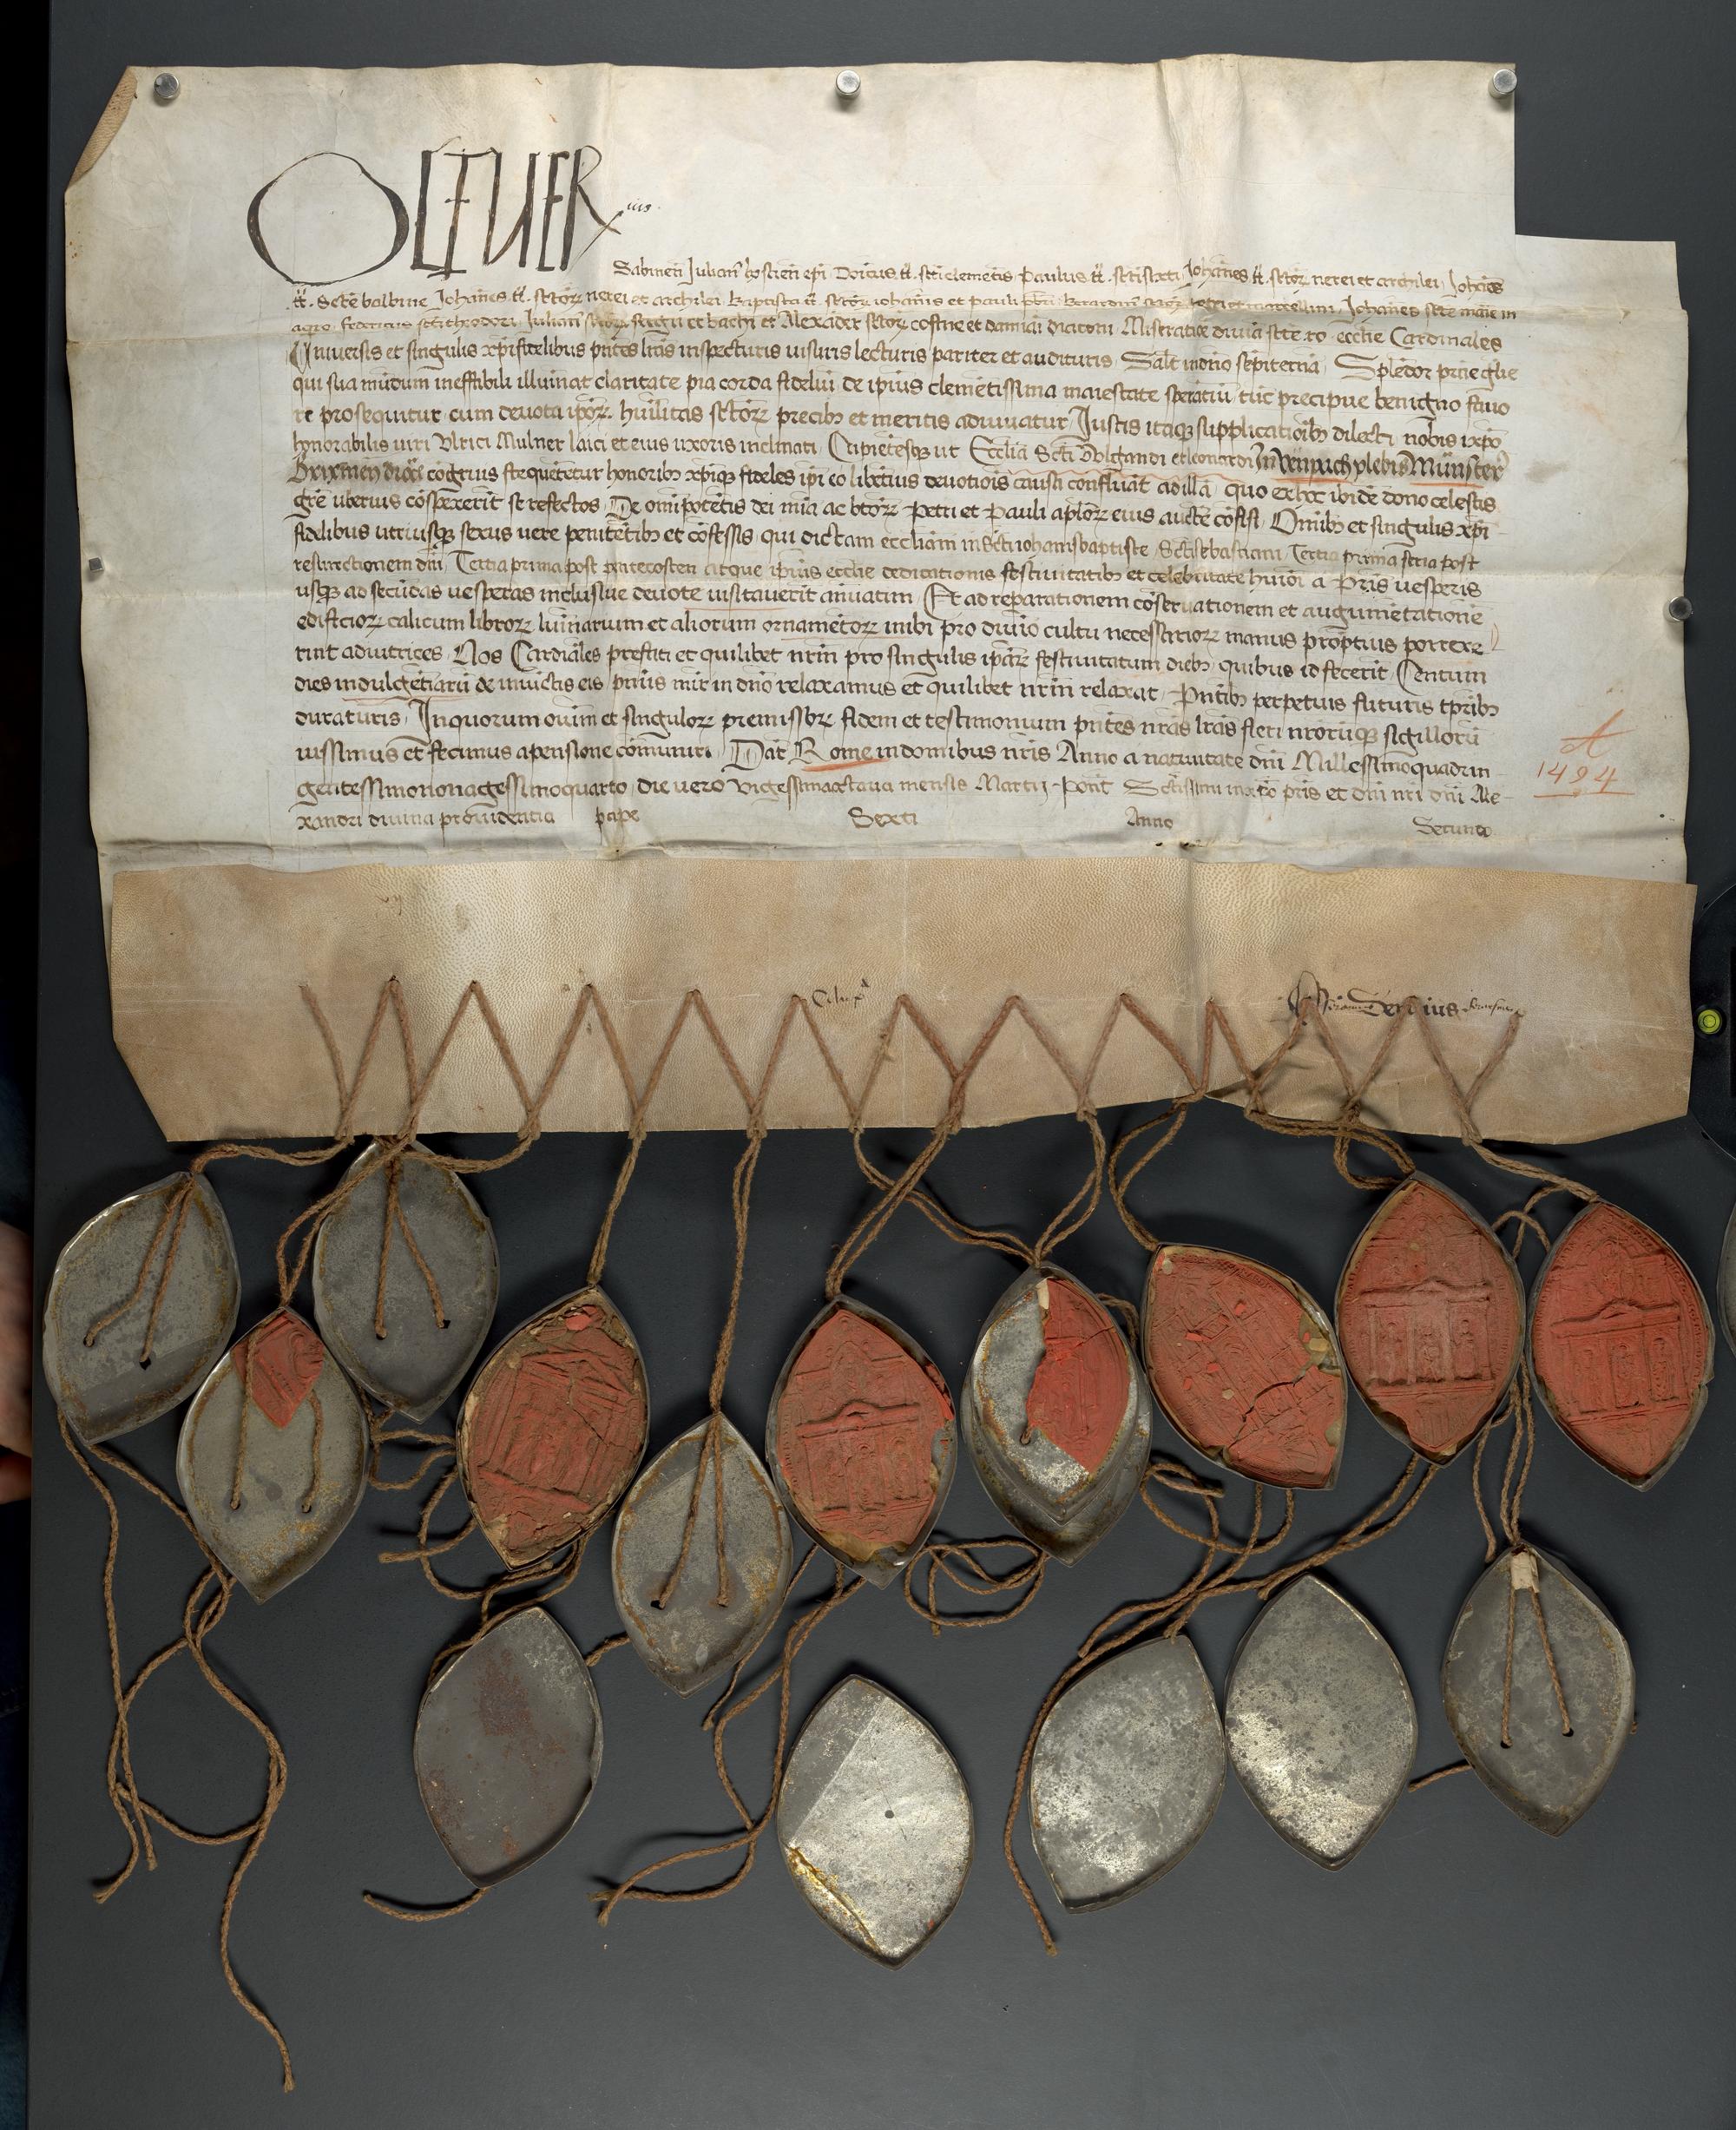 OLIUERius.
Sabineñ Julian᷒ hostien̄ epi Dōicus tt̄. sctī clemētis Paulus tt̄. sctī sixti Johānes tt̄. sctōꝝ nerei et archilei Johānes
tt̄. scte balbine Johānes tt̄. sctōꝝ nerei et archilei Baptista tt̄. sctōꝝ iohānis et pauli petri et marcellini Johānes scte marie in
aqro federicus scti theodori Julian᷒ sctōꝝ sergii et bachi et Alexāder sctōꝝ cosme et damiāi diaconi Miseratiōe diuīa scte. ro. ecctie Cardinales
Vniuersis et singulis xp̄ifidelibus pn̄tes lrās inspecturis uisuris lecturis pariter et audituris Salt̄ in dn̄o sēpiternā Splēdor pr̄ne glīe
qui sua mūdum ineffibili illuīnat claritate pia corda fideliū de ipīus clemētissima maiestate speratiū tūc precipue benigno fauo
re prosequitur cum deuota ipōꝝ huīlitas sctōꝝ precibꝫ et meritis adiuuatur Justis itaqꝫ supplicatiōibꝫ dilecti nobis ī xpō
honorabilis uiri Vlrici Mulner laici et eius uxoris inclinati Cupiētesqꝫ ut Ecclīa Sctī Volgandi et leonardi In Venpach plebis Münster
Brixineñ dioc̄ cōgruis frequētetur honoribꝫ xp̄iqꝫ fideles ipī eo libētius deuotiōis causa confluāt ad illā quo ex hoc ibidē dono celestis
grē uberius cōspexerit se refectos De omīpotētis dei mīa ac btōꝝ Petri et Pauli aplōꝝ eius auctē cōfisi Omībꝫ et singulis xp̄i
fidelibus utriusqꝫ sexus uere penitētibꝫ et cōfessis qui dictam eccliām in Sctī iohānis baptiste Sctī sebastiani Tertia prima feria post
resurectionem dn̄i Tertia prima post pentecosten atque ipīus ecclie dedicationis festiuitatibꝫ et celebritate huiōi a Prīs uesperis
usqꝫ ad secūdas uesperas inclusiue deuote uisitauerīt anuatim Et ad reparationem cōseruationem et augumētationē
edificioꝝ calicum libroꝝ luīnarium et aliorum ornamētoꝝ inibi pro diuīo cultu necessarioꝝ manus prōptius porrexe
rint adiutrices Nos Cardiāles prefati et quilibet nr̄m pro singulis ipāꝝ festiuitatum diebꝫ quibus id fecerīt Centum
dies indulgētiarū de iniūctis eis pn̄iis mīr in dn̄o relaxamus et quilibet nr̄m relaxat Pn̄tibꝫ perpetuis futuris tp̄ribꝫ
duraturis In quorum oīum et singuloꝝ premissōꝝ fidem et testimonium pn̄tes nrās lrās fieri nrōrūqꝫ sigillorū
iussimus et fecimus apensione cōmuniri Dat̄ Rome in domibus nrīs Anno a natiuitate dn̄i Millessimoquadrin
gentessimononagessimoquarto die uero Vigessimaoctaua mensis Martij Pont̄ Sctīssimi in xpō prīs et dn̄i nrī dn̄i Ale
xandri diuina prouidentia pape Sexti Anno Secundo.
A
1494